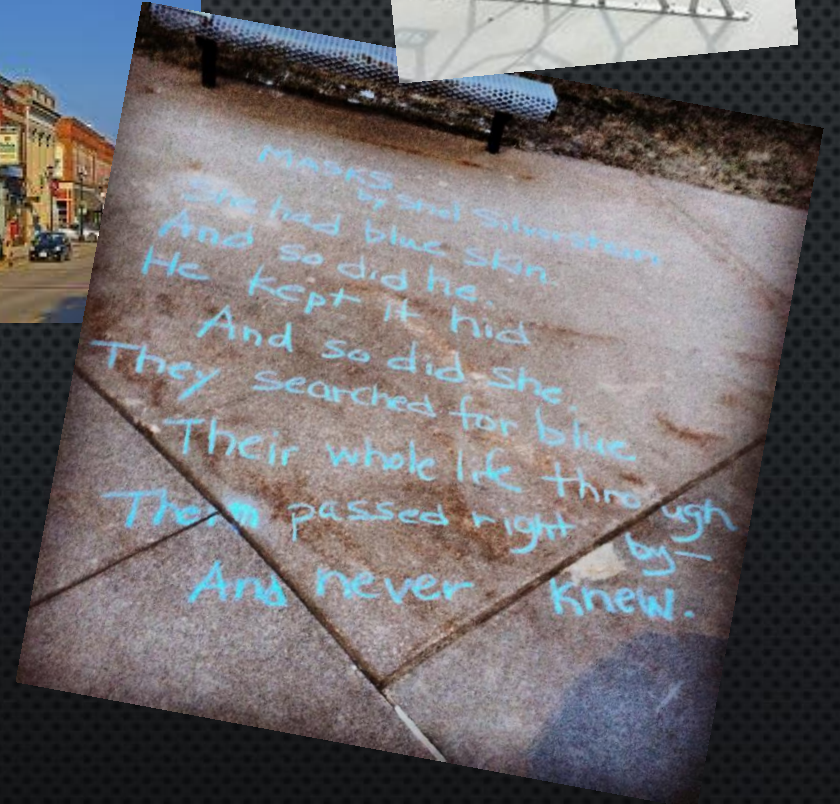 MASKS
by Shel Silverstein
She had blue skin.
And so did he.
He kept it hid
And so did she.
They searched for blue
Their whole life through
Them passed right by—
And never knew.